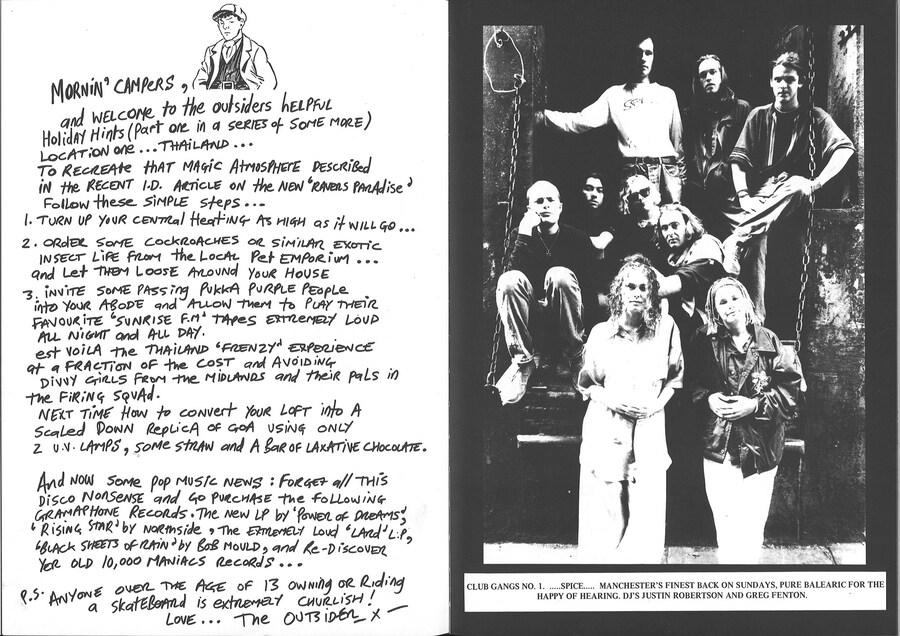 MORNIN' CAMPERS,
and WELCOME to the outsiders HELPFUL
HOLIDAY HINTS (PART ONE IN A SERIES of SOME MORE)
LOCATION ONE... THAILAND...
TO RECREATE THAT MAGIC ATMOSPHERE DESCRIBED
IN the RECENT I.D. ARTICLE ON the NEW 'RAVERS PARAdISE'
Follow these SIMPLE STEPS...
1. TURN UP YOUR CENTRAL HEATING AS HIGH as it WILL GO...
2. ORDER SOME COCKROACHES OR SIMILAR EXOTIC
INSECT LIFE FROM the LOCAL PET EMPORIUM...
and LET THEM LOOSE AROUND YOUR HOUSE
3. INVITE SOME PASSING PUKKA PURPLE PEOPLE
into YOUR ABODE and ALLOW THEM to PLAY THEIR
FAVOURITE 'SUNRISE F.M' TAPES EXTREMELY LOUD
ALL NIGHT and ALL DAY.
est VOILA the THAILAND 'FRENZY' EXPERIENCE
at a FRACTION of the COST and AVOIDING
DIVVY GIRLS FROM the MIDLANDS and their PALS in
the FIRING SQUAd.
NEXT TIME HOW to CONVERT YOUR LOFT into A
SCALED DOWN REPLICA OF GOA USING ONLY
2 U.V. LAMPS, SOME STRAW and A BAR OF LAXATIVE CHOCOLATE.
And NOW SOME POP MUSIC NEWS: FORGET all THIS
DISCO NONSENSE and GO PURCHASE the FOLLOWING
GRAMAPHONE RECORDS. THE NEW LP by 'POWER OF DREAMS',
'RISING STAR' by NORTHSIDE, THE EXTREMELY LOUD 'LARD' L.P,
'BLACK SHEETS OF RAIN' by BOB MOULD, and RE-DISCOVER
YER OLD 10,000 MANIACS RECORDS...
P.S. ANYONE OVER THE AGE OF 13 OWNING OR RIDING
a SKATEBOARD is EXTREMELY CHURLISH!
LOVE... The OUTSIDER X
CLUB GANGS NO. 1. .....SPICE..... MANCHESTER'S FINEST BACK ON SUNDAYS, PURE BALEARIC FOR THE
HAPPY OF HEARING. DJ'S JUSTIN ROBERTSON AND GREG FENTON.